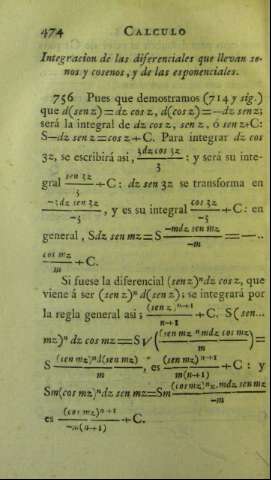 474 CALCULO
Integracion de las diferenciales que llevan se-
nos y cosenos, y de las esponenciales.
756 Pues que demostramos (714 y sig.)
que d(sen z)=dz cos z, d(cos z)=—dz sen z;
será la integral de dz cos z, sen z, ó sen z+C:
S—dz sen z=cos z+C. Para integrar dz cos
3z, se escribirá asi, 3dz cos 3z/3 : y será su inte-
gral sen 3z/3 +C: dz sen 3z se transforma en
—3dz sen 3z/—3, y es su integral cos 3z/—3 +C: en
general, Sdz sen mz=S —mdz sen mz/—m =—..
cos mz/m +C.
Si fuese la diferencial (sen z)ⁿdz cos z, que
viene á ser (sen z)ⁿ d(sen z); se integrará por
la regla general asi; (sen z)ⁿ⁺¹/n+1 +C. S(sen...
mz)ⁿ dz cos mz=S√((sen mz)ⁿ mdz cos mz/m)=
S (sen mz)ⁿd(sen mz)/m, es (sen mz)ⁿ⁺¹/m(n+1) +C: y
Sm(cos mz)ⁿdz sen mz=Sm (cos mz)ⁿ x. mdz sen mz/—m
es (cos mz)ⁿ⁺¹/—m(n+1) +C.